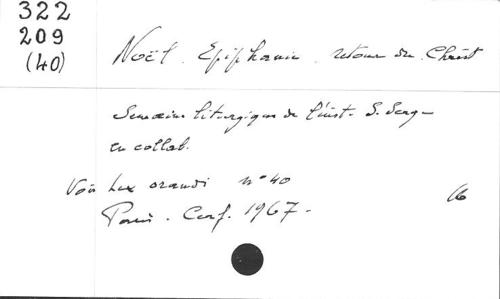 322
209
(40)
Noël. Epiphanie. retour du Christ
Semaine liturgique de l'inst. S. Serge
en collab.
Voir Lex orandi n° 40
Paris. Cerf. 1967.